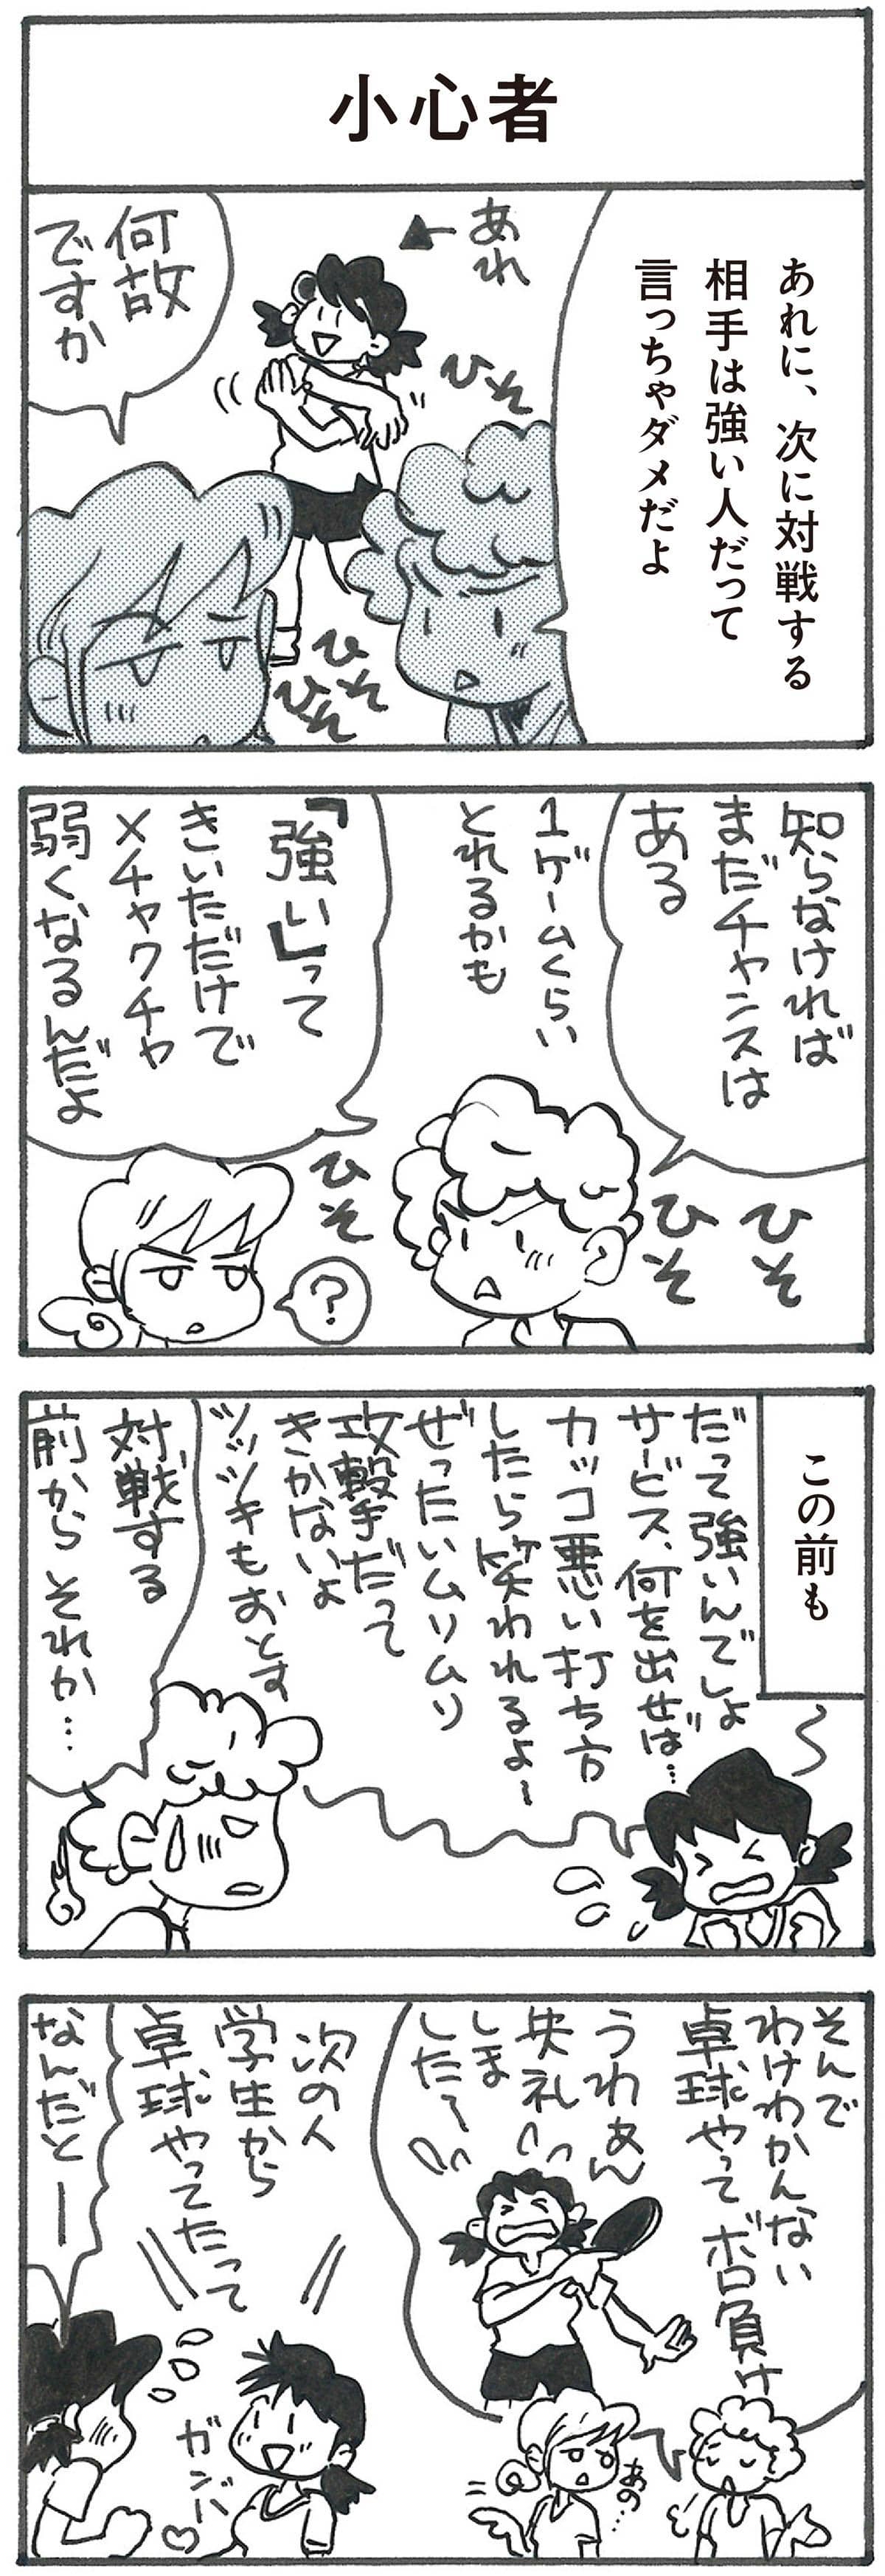 小心者
あれに、次に対戦する
相手は強い人だって
言っちゃダメだよ
あれ
ひそ
何故
ですか
ひそ
ひそ
知らなければ
まだチャンスは
ある
1ゲームくらい
とれるかも
「強い」って
きいただけで
メチャクチャ
弱くなるんだよ
ひそ
ひそ
ひそ
?
この前も
だって強いんでしょ
サービス、何を出せば…
カッコ悪い打ち方
したら笑われるよー
ぜったいムリムリ
攻撃だって
きかないよ
ツッツキもおとす
対戦する
前からそれか…
そんで
わけわかんない
卓球やってボロ負け
うわぁん
失礼
しま
したー
あの…
次の人
学生から
卓球やってたって
ガンバ♡
なんだとー